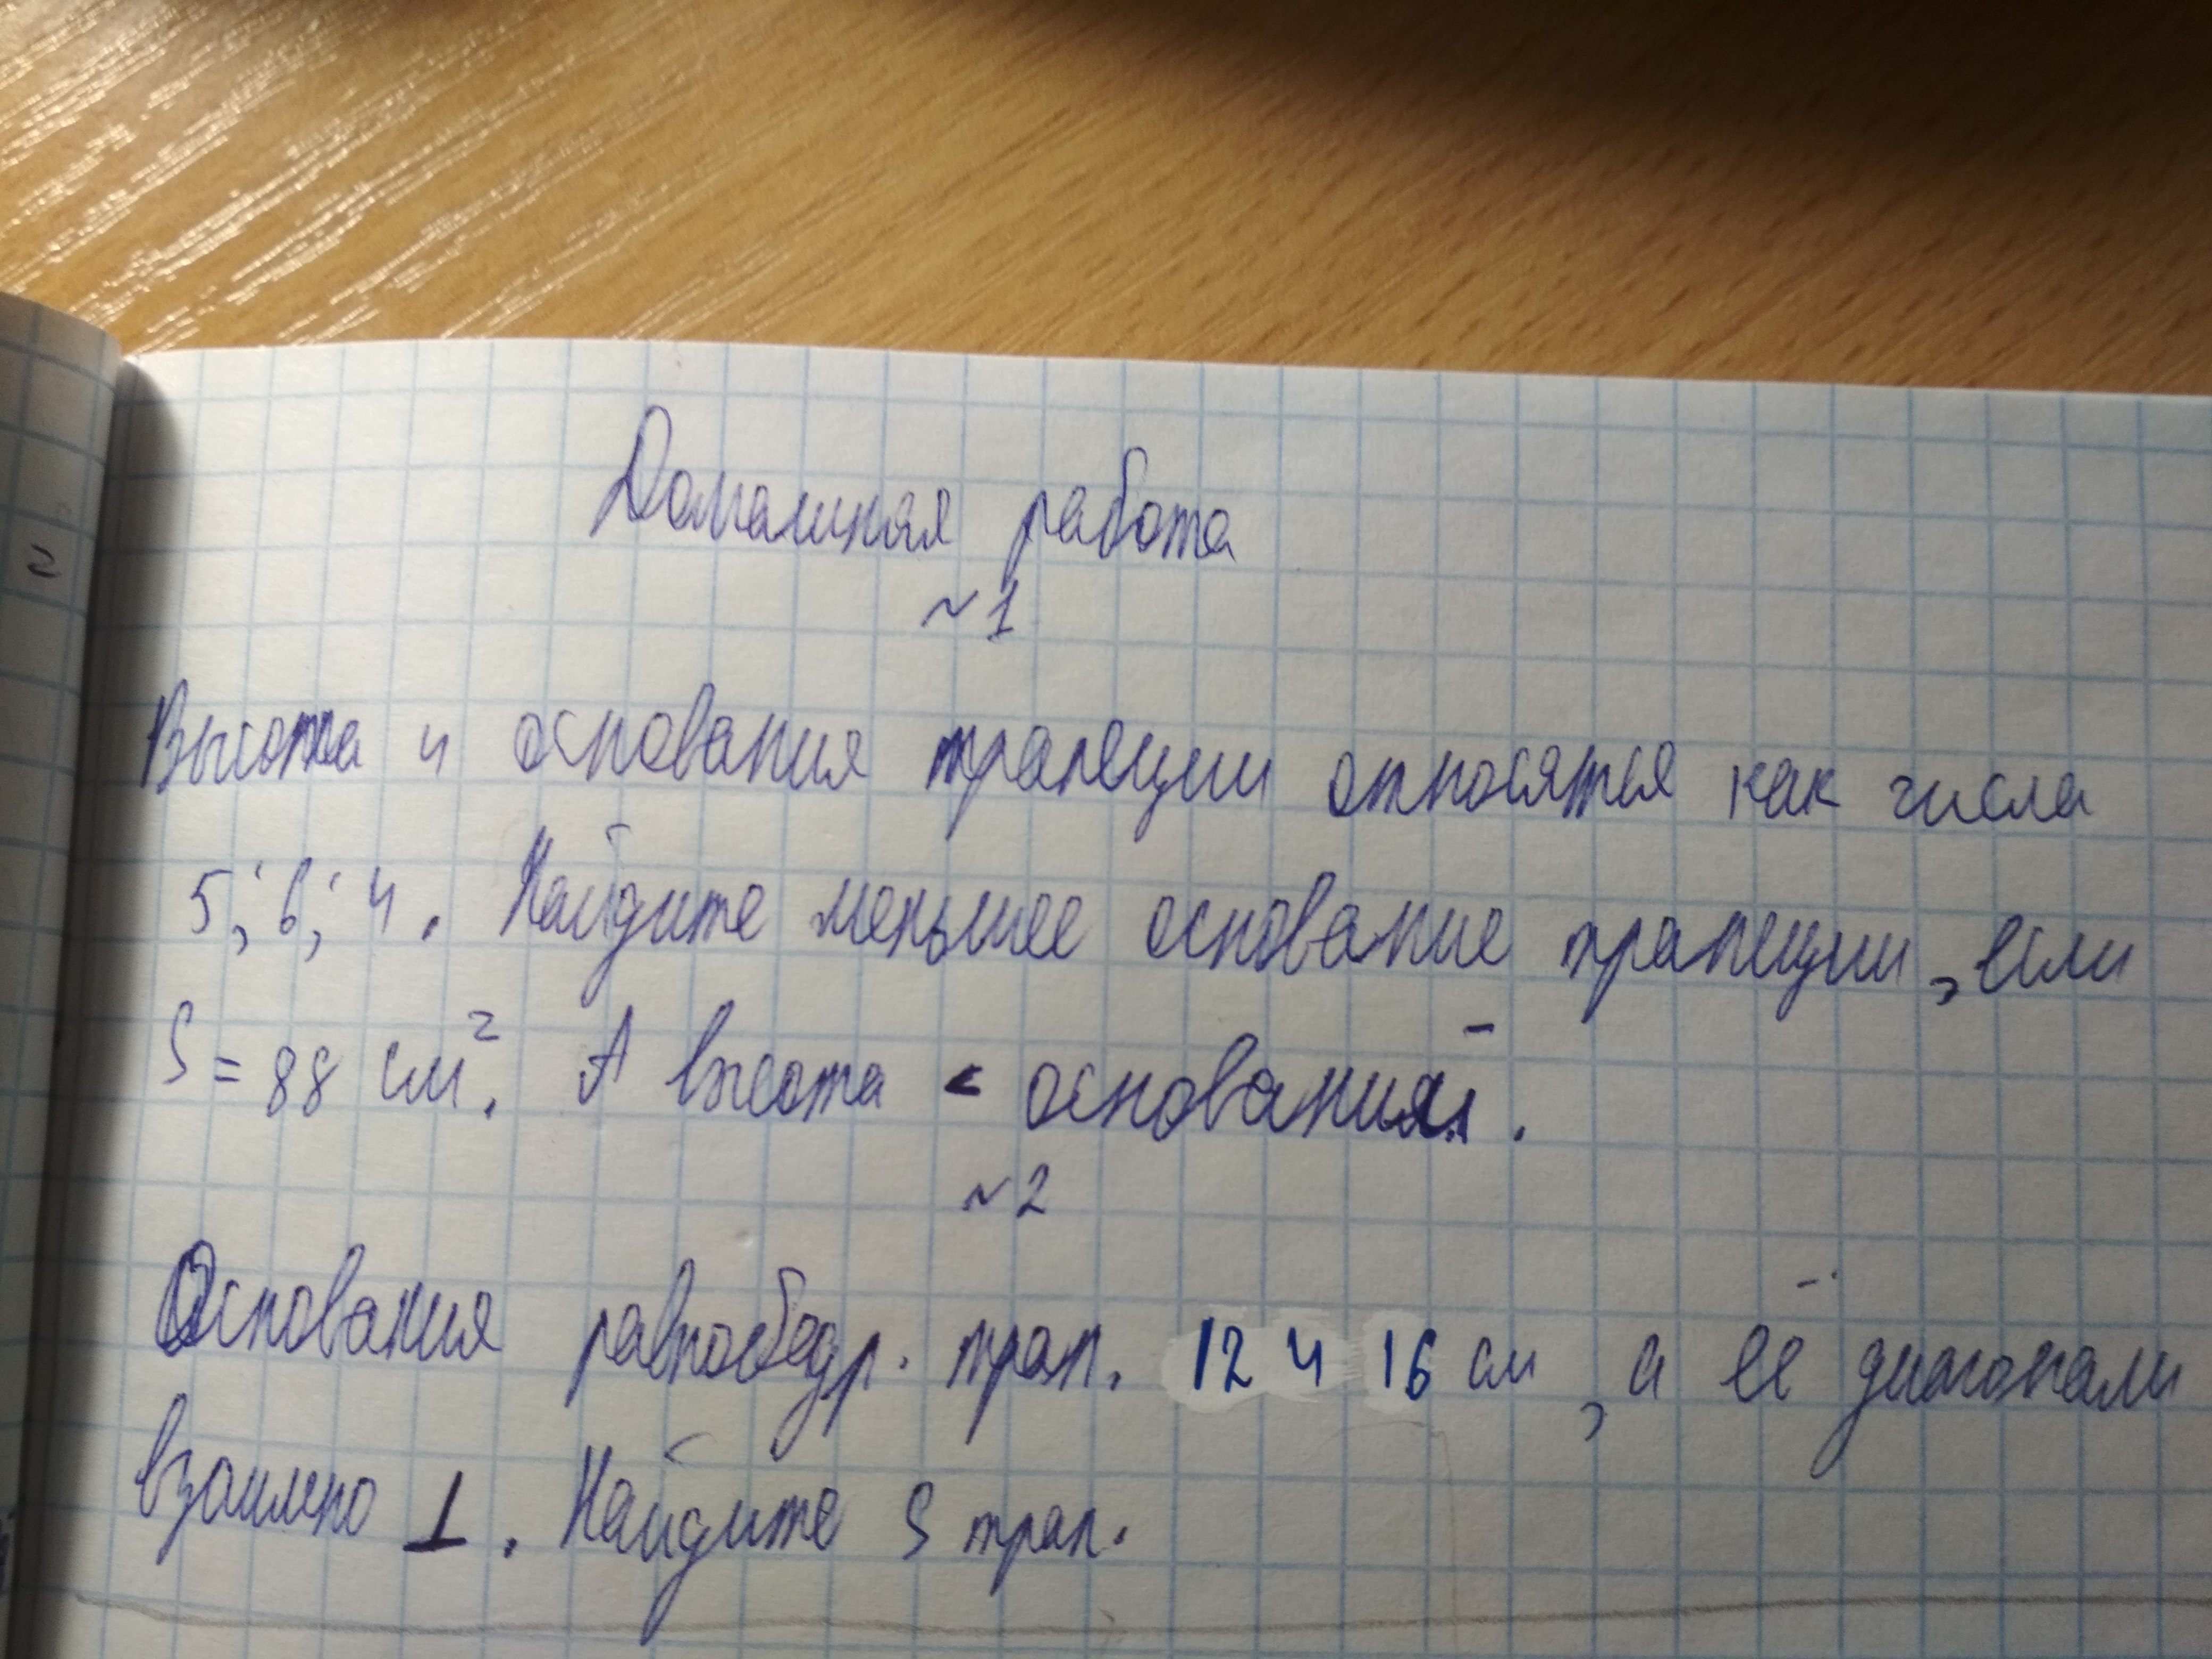 Домашняя работа
~1
Высота и основания трапеции относятся как числа
5; 6; 4. Найдите меньшее основание трапеции, если
S = 88 см². А высота < оснований.
~2
Основания равнобедр. трап. 12 и 16 см, а её диагонали
взаимно ⊥. Найдите S трап.
2